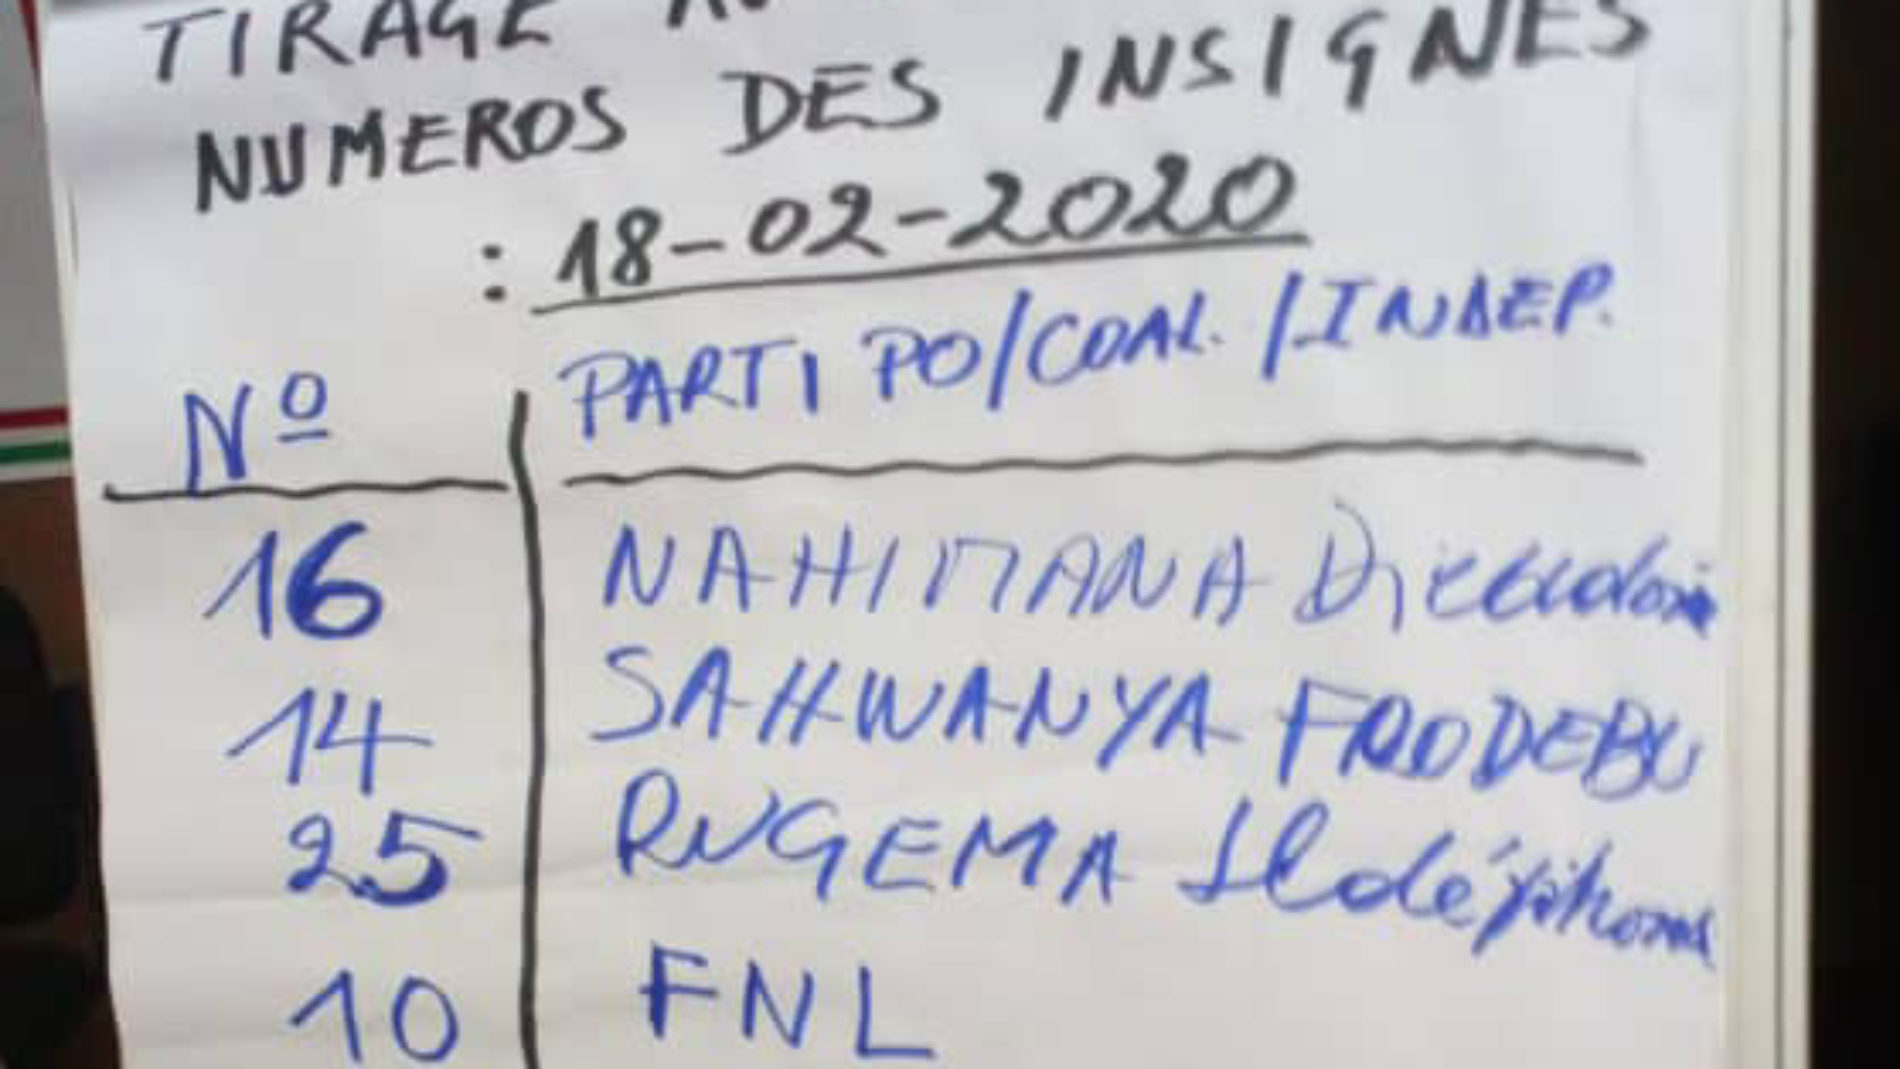 TIRAGE AU
NUMEROS DES INSIGNES
: 18-02-2020
Nº PARTI PO/COAL./INDEP.
16 NAHIMANA
14 SAHWANYA FRODEBU
25 RUGEMA Ildéphonse
10 FNL